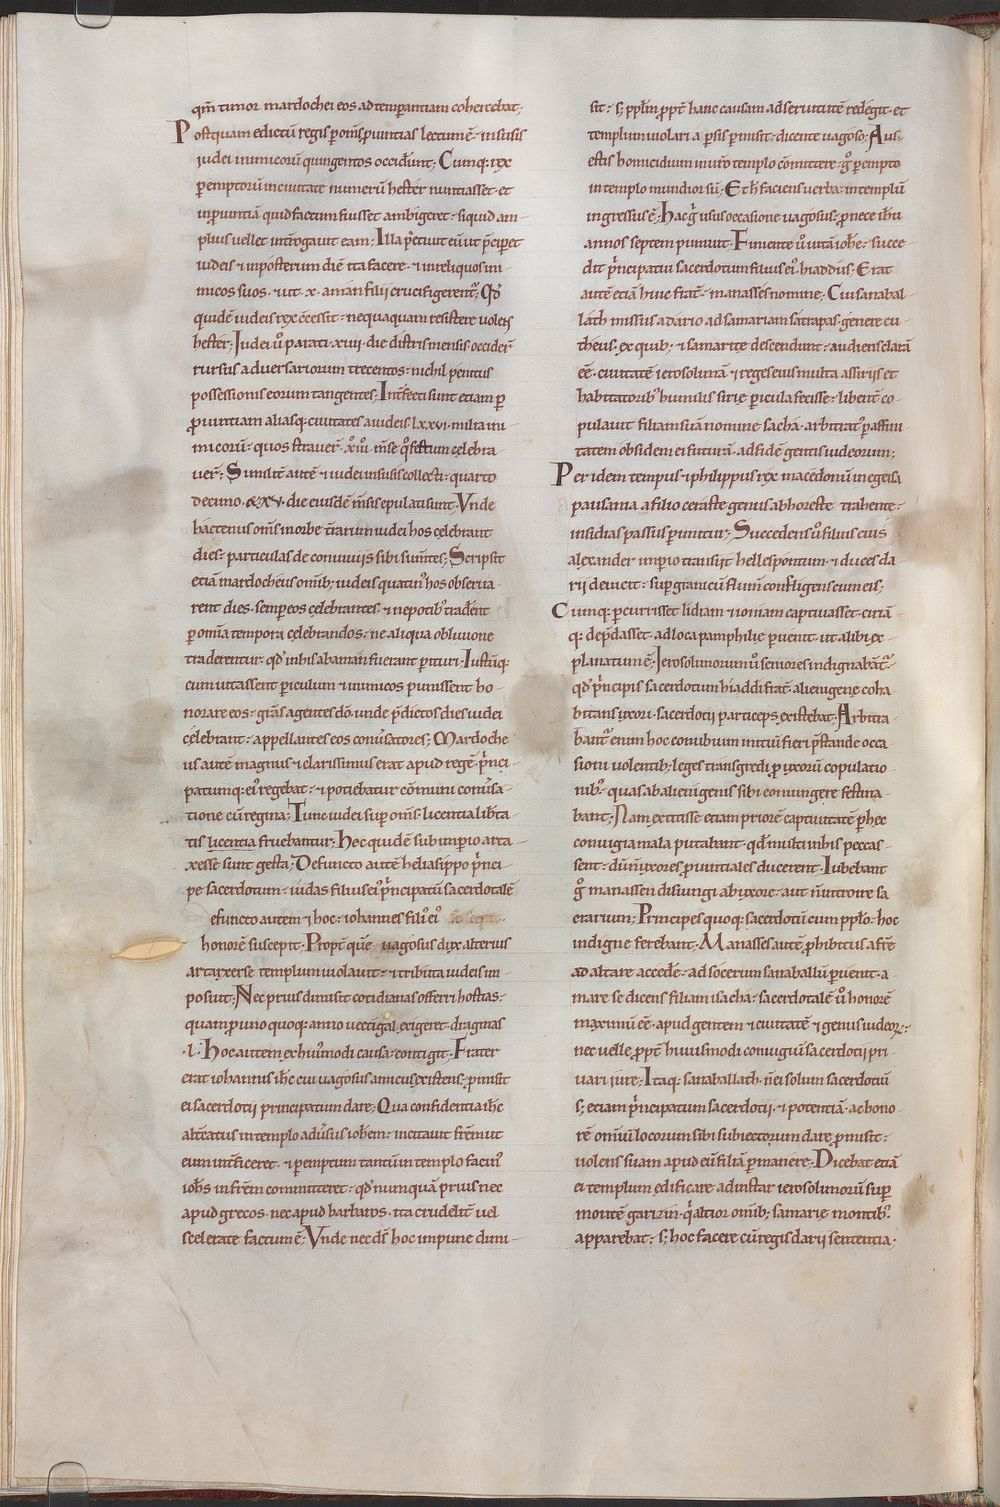 qm̄ timor mardochei eos ad temperantiam cohercebat;
Postquam edictū regis ꝑ om̄s ꝓuintias lectum ē· in susis
iudei inimicorū quingentos occidȩ̄unt; Cumq; rex
ꝑemptorū in ciuitate numerū hester nuntiasset· et
in ꝓuintiā quid factum fuisset ambigeret· si quid am-
plius uellet int̄rogauit eam; Illa petiuit eū ut p̄ciperet
iudeis & in posterum diē ita facere· & in reliquos ini-
micos suos· & ut ·x· aman filii crucifigerent᷑; Qd̄
quidē iudeis rex c̄cessit· nequaquam resistere uolens
hester; Iudei ū parati ·xiiii· die distris mensis· occider̄
rursus aduersariorum trecentos· nichil penitus
possessionis eorum tangentes; Int̄fecti sunt etiam ꝑ
ꝓuintiam aliasq; ciuitates a iudeis lxxv· milia ini-
micorū· quos strauer̄ ·xiii· m̄se q̊ festum celebra
uer̄; Similit̄ autē & iudei in susis collecti· quarto
decimo ·& xv· die eiusdē m̄sis epulati sunt· Vnde
hactenus om̄s in orbe t̄rarum iudei hos celebrant
dies· particulas de conuiuiis sibi sum̄tes; Scripsit
etiā mardocheus omib; iudeis quatin᷒ hos obserua
rent dies· semper eos celebrantes· & nepotib᷒ trader̄ent
ꝑ omīa tempora celebrandos· ne aliqua obliuione
traderentur· qd̄ in his ab aman fuerant perituri· Iustūq;
cum uitassent periculum & inimicos punissent ho-
norare eos· gr̄as agentes dō· unde p̄dictos dies iudei
celebrant· appellantes eos conseruatores; Mardoche
us autē magnus & clarissimus erat apud regē· p̄nci
patumq; ei᷒ regebat· & potiebatur cōmuni conūsa-
tione cū regina; Tunc iudei super om̄s licentia libt̄a
tis licentia fruebantur; Hoc quidē sub imperio arta
xesse sunt gesta; Defuncto autē heliasippo p̄nci
pe sacerdotum· iudas filius ei᷒ p̄ncipatū sacerdotalē
efuncto autem & hoc· iohannes fili᷒ ei᷒
honorē suscepit· Propt̄ quē uagosus dux alterius
artaxerse templum uiolauit· & tributa iudeis im-
posuit; Nec prius dimisit cotidianas offerri hostias·
quam ꝓ uno quoq; anno uectigal exigeret· dragmas
·l· Hoc autem ex hui᷒modi causa· contigit· Frater
erat iohannis ih̄c cui uagosus amicus existens· ꝓmisit
ei sacerdotii principatum dare; Qua confidentia ih̄c
alt̄catus in templo adūsus ioh̄em· incitauit fr̄em ut
eum int̄ficeret· & ꝑemptum tantū in templo facin᷒
ioh̄s in fr̄em committeret· qd̄ nunquā prius nec
apud grecos· nec apud barbaros· ita crudelit̄ uel
scelerate factum ē; Vnde nec ds̄ hoc impune dimi-
sit· s; ppl̄m ꝓpt̄ hanc causam ad seruitutē redegit· et
templum uiolari a persis ꝑmisit· dicente uagoso; Aus
estis homicidium in ur̄o templo cōmittere· g̊ perempto
in templo mundior sū; Et h̄ faciens uerba· in templū
ingressus ē; Hac g̊ usus occasione uagosus· ꝓ nece ih̄u
annos septem puniuit· Finiente ū uitā ioh̄e· succe
dit p̄ncipatui sacerdotum filius ei᷒ hiaddus· Erat
autē etiā huic frat̄ manasses nomine; Cui sanabal-
lath missus a dario ad samariam satrapas· genere cu-
theus· ex quib; & samarite descendunt· audiens claram
ēē ciuitatē ierosolimā & reges eius multa assiriis et
habitatorib᷒ humilis sirie pericula fecisse· libent̄ co-
pulauit filiam suā nomine sacha· arbitrat᷒ ꝑ affini
tatem obsidem ei futurā ad fidē gentis iudeorum;
Per idem tempus & philippus rex macedonū in egeis a
pausania a filio ceraste genus ab horeste trahente·
insidias passus perimitur; Succedens ū filius eius
alexander imperio transiit hellespontum· & duces da-
rii deuicit· sup granicū flum̄ confligens cum eis;
Cumq; ꝑcurrisset lidiam & ioniam captiuasset· ciriā-
q; dep̄dasset· ad loca pamphilie ꝑuenit· ut alibi ex-
planatum ē; Ierosolimorum ū seniores indignabāt᷑
qd̄ p̄ncipis sacerdotum hiaddi frat̄ alienigene coha-
bitans uxori· sacerdotii particeps existebat· Arbitra
bant᷑ enim hoc conubium initiū fieri p̄stande occa
sioni uolentib; leges transgredi ꝓ uxorū copulatio-
nib᷒· quas ab alienigenis sibi coniungere festina-
bant; Nam extitisse etiam priorē captiuitatē per hec
coniugia mala putabant· qd̄ multi in his peccas-
sent· dum uxores ꝓuintiales ducerent· Iubebant
g̊ manassen disiungi ab uxore· aut n̄ introire sa
crarium; Principes quoq; sacerdotū cum ppl̄o· hoc
indigne ferebant; Manasses autē ꝓhibitus a fr̄e
ad altare acceder̄· ad socerum sanaballū ꝑuenit· a-
mare se dicens filiam isacha· sacerdotalē ū honorē
maximū ēē apud gentem & ciuitatē & genus iudeoꝝ·
nec uelle ꝓpt̄ huiusmodi coniugiū sacerdotii pri-
uari iure; Itaq; sanaballath· n̄ ei solum sacerdotiū
s; etiam p̄ncipatum sacerdotii· & potentiā· ac hono-
rē omniū locorum sibi subiectorum dare ꝓmisit·
uolens suam apud eū filiā permanere; Dicebat etiā
ei templum edificare ad instar ierosolimorū super
montē garizin· q̄ altior omīb; samarie montib᷒
apparebat· s; hoc facere cū regis darii sententia·